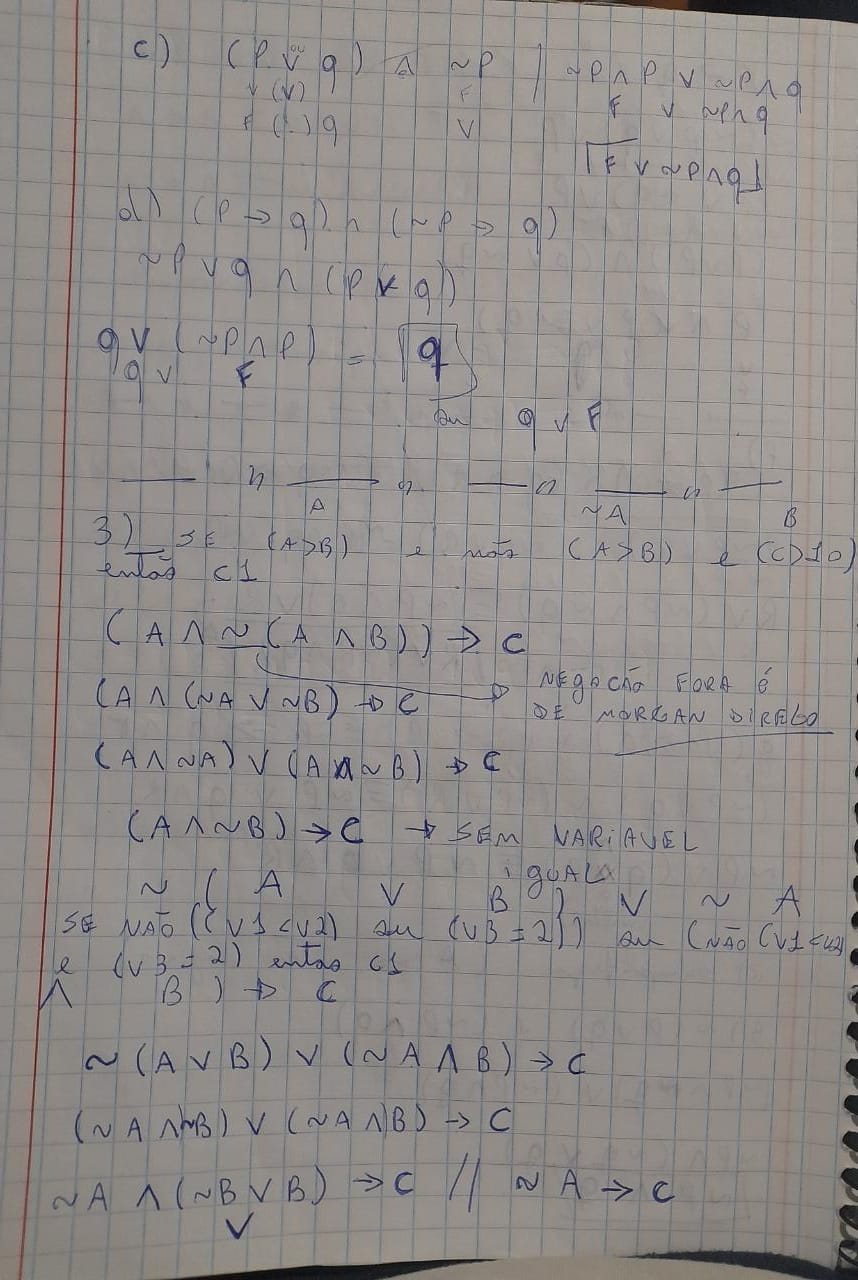 c) (P ∨ q) ∧ ~P | ~P ∧ P ∨ ~P ∧ q
ou
V (V) F F ∨ ~P ∧ q
F ( ) q V
F ∨ ~P ∧ q
d) (P → q) ∧ (~P → q)
~P ∨ q ∧ (P ∨ q)
q ∨ (~P ∧ P) = q
q ∨ F
ou q ∨ F
A ~A B
3) SE (A>B) e não (A>B) e (C>10)
então C1
(A ∧ ~(A ∧ B)) → C
(A ∧ (~A ∨ ~B) → C
NEGAÇÃO FORA É
DE MORGAN DIRETO
(A ∧ ~A) ∨ (A ∧ ~B) → C
(A ∧ ~B) → C → SEM VARIAVEL
iGUAL
~ ( A ∨ B ) ∨ ~ A
SE NÃO ((V1 < V2) ou (V3 = 2)) ou (NÃO (V1 < V2)
e (V3 = 2) então C1
∧ B ) → C
~ (A ∨ B) ∨ (~A ∧ B) → C
(~A ∧ ~B) ∨ (~A ∧ B) → C
~A ∧ (~B ∨ B) → C // ~A → C
V